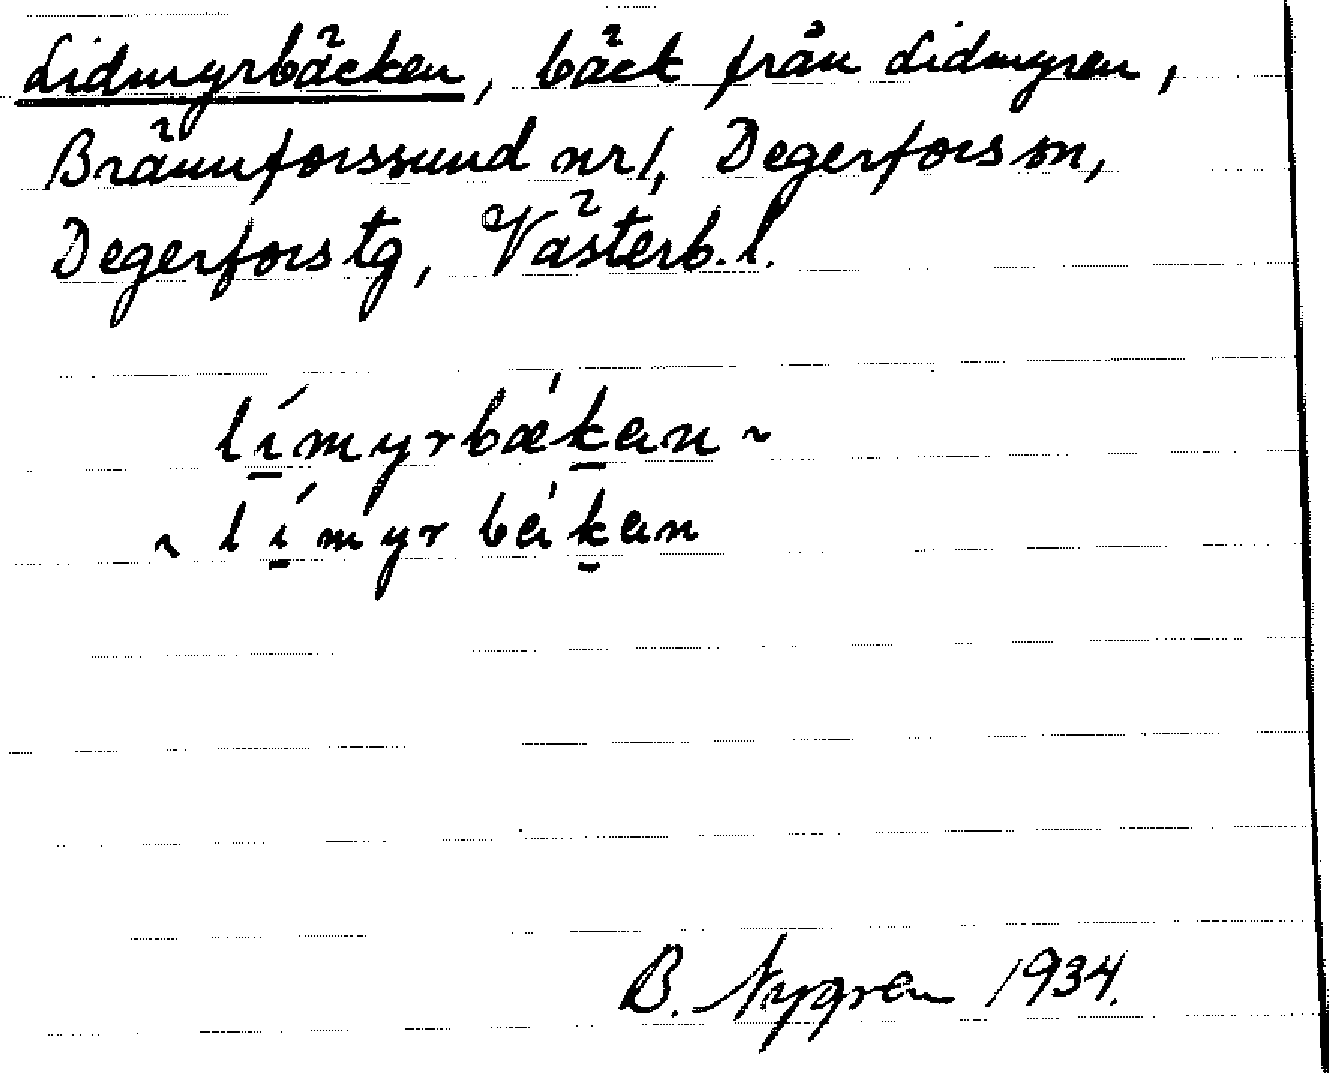 Lidmyrbäcken, bäck från Lidmyren,
Brännforssund nr 1, Degerfors sn,
Degerfors tg, Västerb. l.
límyrbækan ~
~ límyrbákan
B. Nygren 1934.